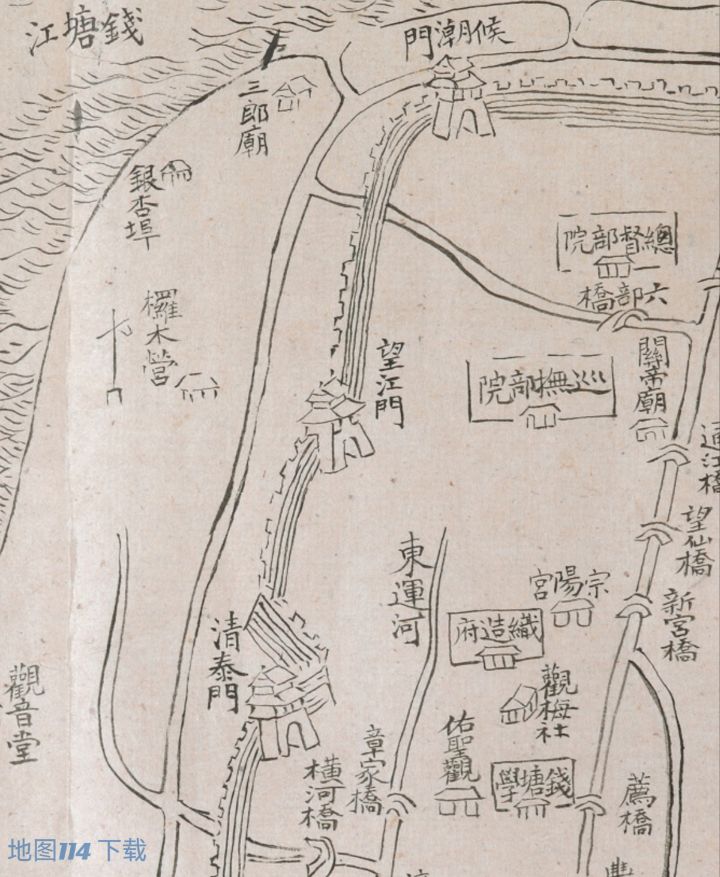 錢塘江
候潮門
三郎廟
銀杏埠
總督部院
六部橋
欏木營
望江門
關帝廟
巡撫部院
通江橋
望仙橋
東運河
宗陽宮
新宮橋
織造府
清泰門
觀音堂
觀梅社
佑聖觀
章家橋
橫河橋
錢塘學
薦橋
地图114 下载